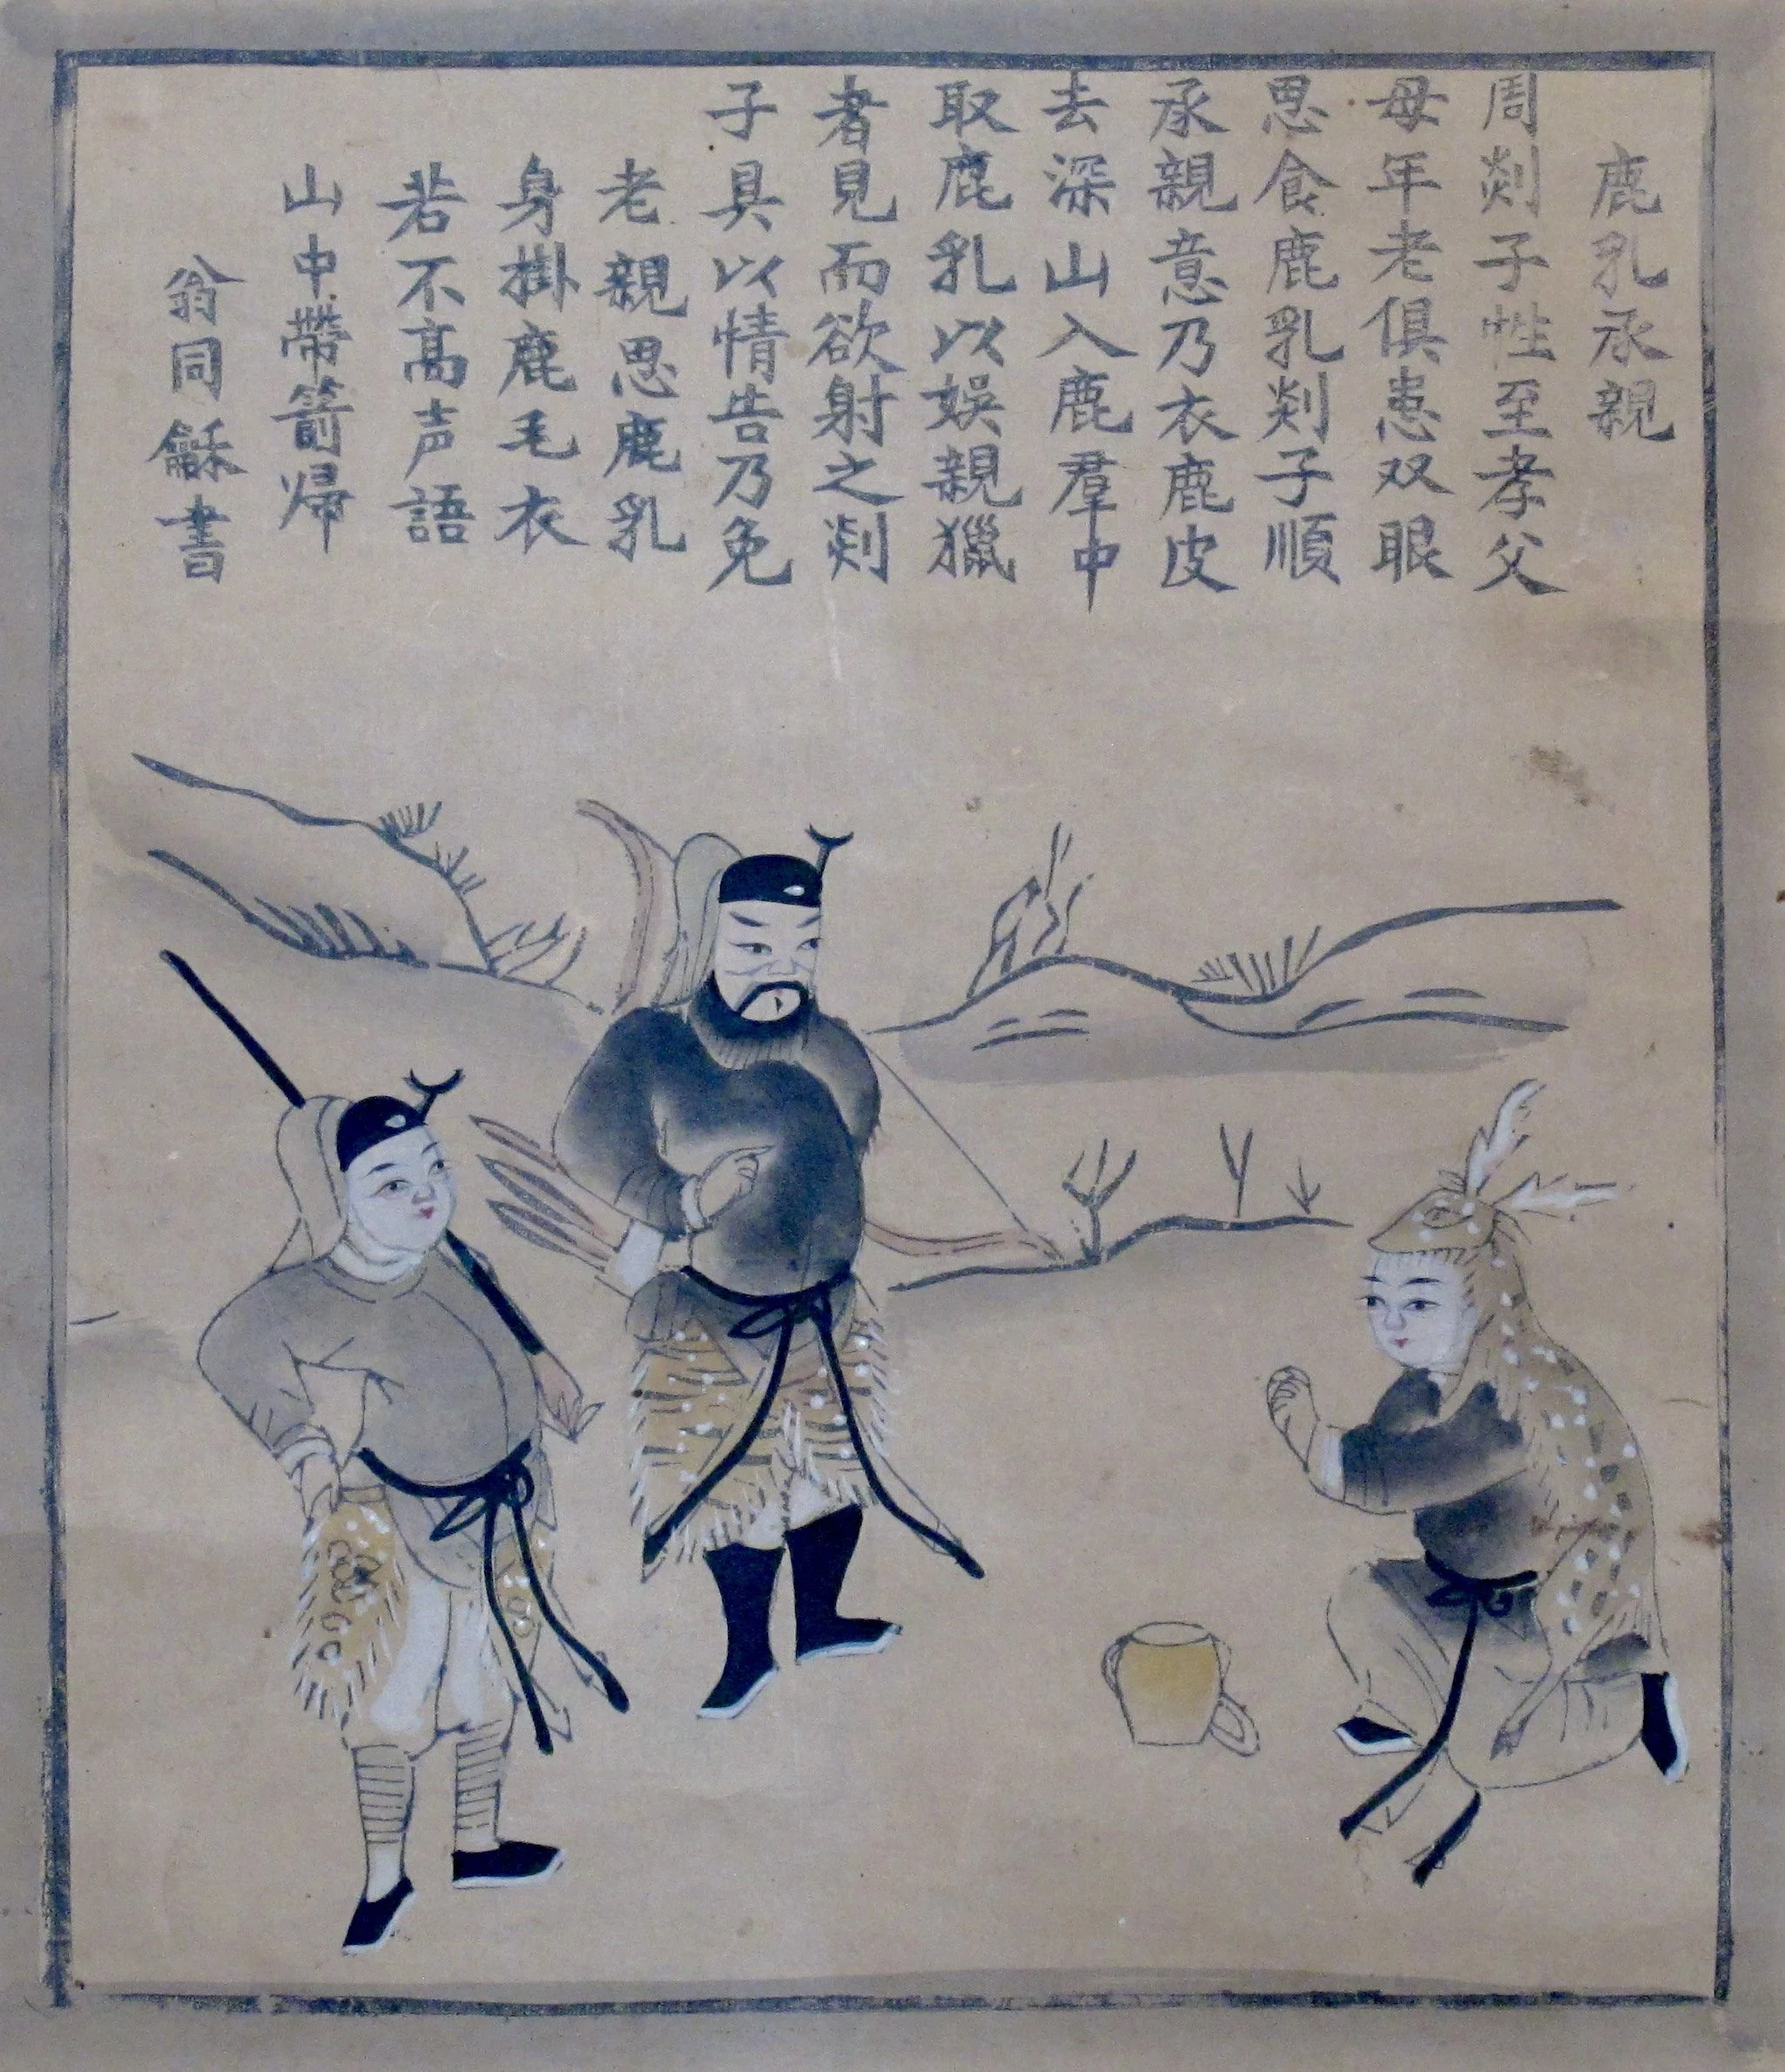 鹿乳承親
周剡子性至孝父
母年老俱患双眼
思食鹿乳剡子順
承親意乃衣鹿皮
去深山入鹿羣中
取鹿乳以娛親獵
者見而欲射之剡
子具以情告乃免
老親思鹿乳
身掛鹿毛衣
若不高声語
山中帶箭歸
翁同龢書